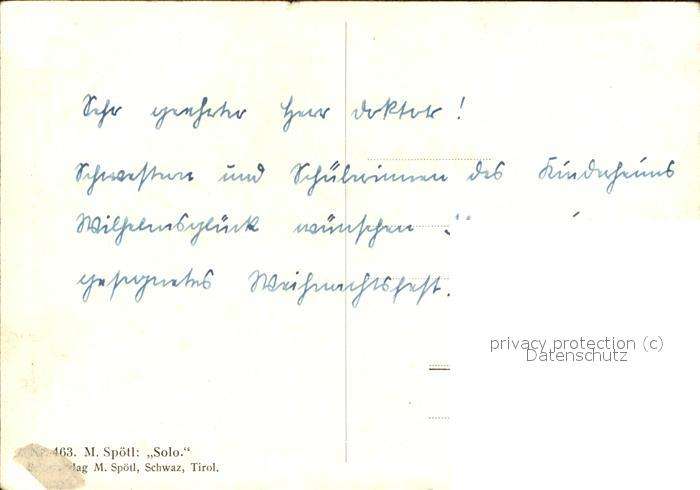 Sehr geehrter Herr Doktor!
Schwestern und Schülerinnen des Kinderheims
Wilhelmsglück wünschen
gesegnetes Weihnachtsfest.
privacy protection (c)
Datenschutz
Nr. 463. M. Spötl: „Solo.“
M. Spötl, Schwaz, Tirol.